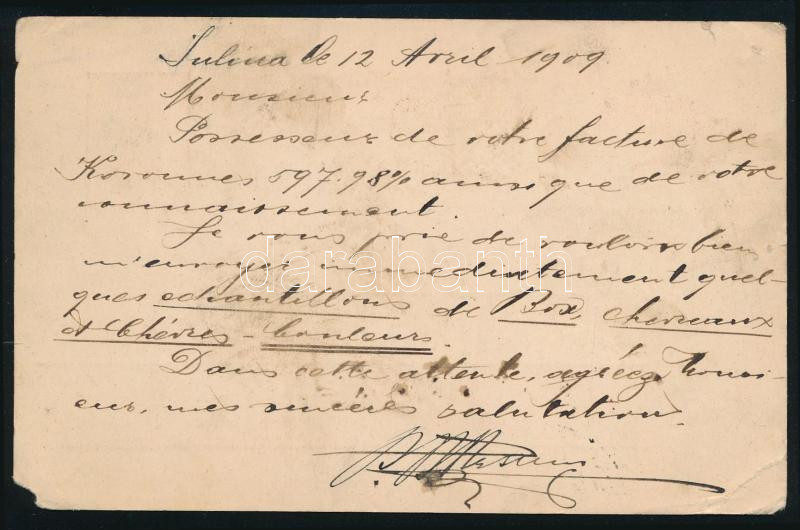 Sulina le 12 Avril 1909
Monsieur
Possesseur de votre facture de
Koronnes 597.98% ainsi que de votre
connaissement.
Je vous prie de vouloir bien
m'envoyer immediatement quel-
ques echantillons de Box, chevreaux
et Chèvres - Couleurs.
Dans cette attente, agréez Monsi-
eur, mes sincères salutation.
darabanth